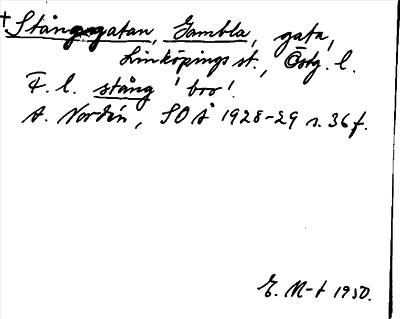 †Stånggatan, Gambla, gata,
Linköpings st., Östg. l.
F. l. stång 'bro'.
A. Nordén, SOÅ 1928-29 s. 36f.
E. M-t 1950.